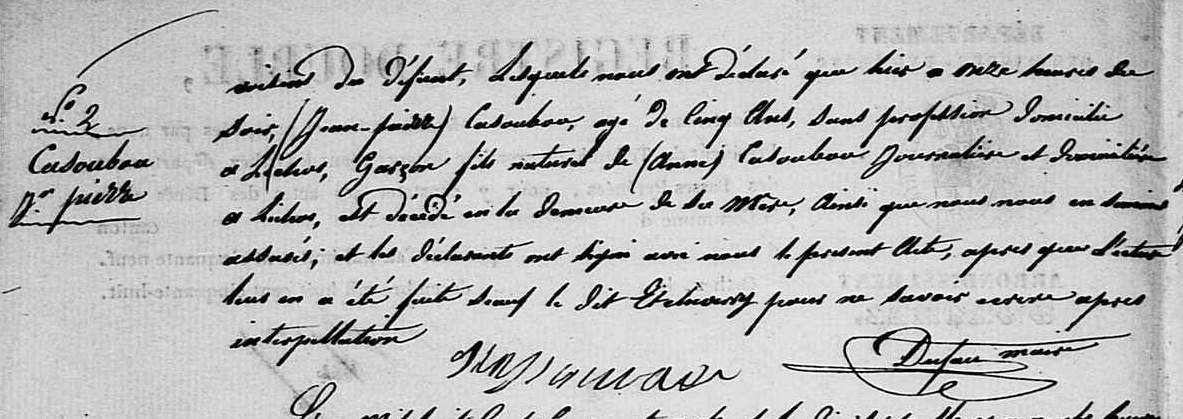 N° 2
Casoubou
Jn pierre
voisins du défunt, Lesquels nous ont déclaré que hier a onze heures du
soir, (Jean-pierre) Casoubou, agé de Cinq Ans, sans profession domicilié
a Lichos, Garçon fils naturel de (Anne) Casoubou Journalière et domiciliée
a Lichos, est décédé en la demeure de sa Mère, Ainsi que nous nous en sommes
assurés; et les déclarants ont signé avec nous le present Acte, apres que Lecture
leur en a été faite sauf le dit Etchourry pour ne savoir ecrire apres
interpellation
Dufau maire